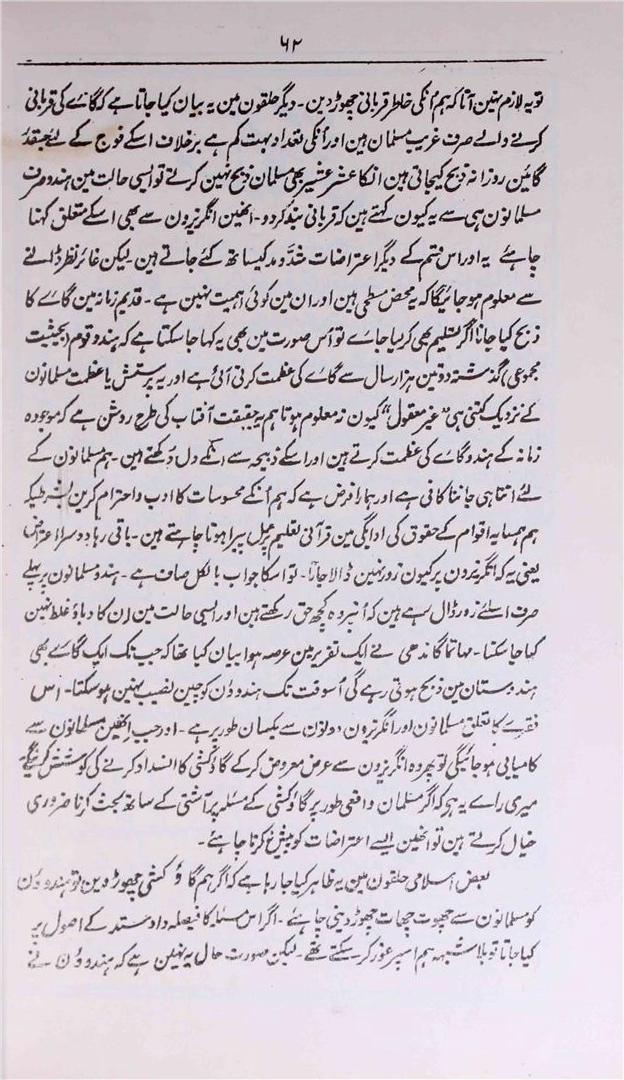 ۶۲
تو یہ لازم نہین آتا کہ ہم اُنکی خاطر قربانی چھوڑ دین ۔ دیگر حلقون مین یہ بیان کیا جاتا ہے کہ گائے کی قربانی
کرنے والے صرف غریب مسلمان ہین اور اُنکی تعداد بہت کم ہے بر خلاف اسکے فوج کے لئے جسقدر
گائین روزانہ ذبح کیجاتی ہین انکا عشر عشیر بھی مسلمان ذبح نہین کرتے تو ایسی حالت مین ہندو صرف
مسلمانون ہی سے یہ کیون کہتے ہین کہ قربانی بند کر دو ۔ انھین انگریزون سے بھی اسکے متعلق کہنا
چاہئے یہ اور اس قسم کے دیگر اعتراضات شد و مد کیساتھ کئے جاتے ہین ۔ لیکن غائر نظر ڈالنے
سے معلوم ہو جائیگا کہ یہ محض سطحی ہین اور ان مین کوئی اہمیت نہین ہے ۔ قدیم زمانہ مین گائے کا
ذبح کیا جانا اگر تسلیم بھی کر لیا جائے تو اُس صورت مین بھی یہ کہا جا سکتا ہے کہ ہندو قوم (بحیثیت
مجموعی) گذشتہ دو تین ہزار سال سے گائے کی عظمت کرتی آئی ہے اور یہ پرستش یا عظمت مسلمانون
کے نزدیک کتنی ہی "غیر معقول" کیون نہ معلوم ہو تاہم یہ حقیقت آفتاب کی طرح روشن ہے کہ موجودہ
زمانہ کے ہندو گائے کی عظمت کرتے ہین اور اسکے ذبیحہ سے انکے دل دکھتے ہین ۔ ہم مسلمانون کے
لئے اتنا ہی جاننا کافی ہے اور ہمارا فرض ہے کہ ہم اُنکے محسوسات کا ادب و احترام کرین بشرطیکہ
ہم ہمسایہ اقوام کے حقوق کی ادائگی مین قرآنی تعلیم پر عمل پیرا ہونا چاہتے ہین ۔ باقی رہا دوسرا اعتراض
یعنی یہ کہ انگریزون پر کیون زور نہین ڈالا جاتا ۔ تو اسکا جواب بالکل صاف ہے ۔ ہندو مسلمانون پر پہلے
صرف اسلئے زور ڈال رہے ہین کہ اُنپر وہ کچھ حق رکھتے ہین اور ایسی حالت مین ان کا دباؤ غلط نہین
کہا جا سکتا ۔ مہاتما گاندھی نے ایک تقریر مین عرصہ ہوا بیان کیا تھا کہ جب تک ایک گائے بھی
ہندوستان مین ذبح ہوتی رہے گی اُسوقت تک ہندوؤن کو چین نصیب نہین ہو سکتا ۔ اس
فقرے کا تعلق مسلمانون اور انگریزون دونون سے یکسان طور پر ہے ۔ اور جب انھین مسلمانون سے
کامیابی ہو جائیگی تو پھر وہ انگریزون سے عرض معروض کر کے گاؤکشی کا انسداد کرنے کی کوشش کرینگے ۔
میری رائے یہ ہے کہ اگر مسلمان واقعی طور پر گاؤکشی کے مسئلہ پر آشتی کے ساتھ بحث کرنا ضروری
خیال کرتے ہین تو انھین ایسے اعتراضات کو پیش نہ کرنا چاہئے ۔
بعض اسلامی حلقون مین یہ ظاہر کیا جا رہا ہے کہ اگر ہم گاؤ کشی چھوڑ دین تو ہندوؤن
کو مسلمانون سے چھوت چھات چھوڑ دینی چاہئے ۔ اگر اس مسئلہ کا فیصلہ داد و ستد کے اصول پر
کیا جاتا تو بلا شبہہ ہم اسپر غور کر سکتے تھے ۔ لیکن صورت حال یہ نہین ہے کہ ہندوؤن نے